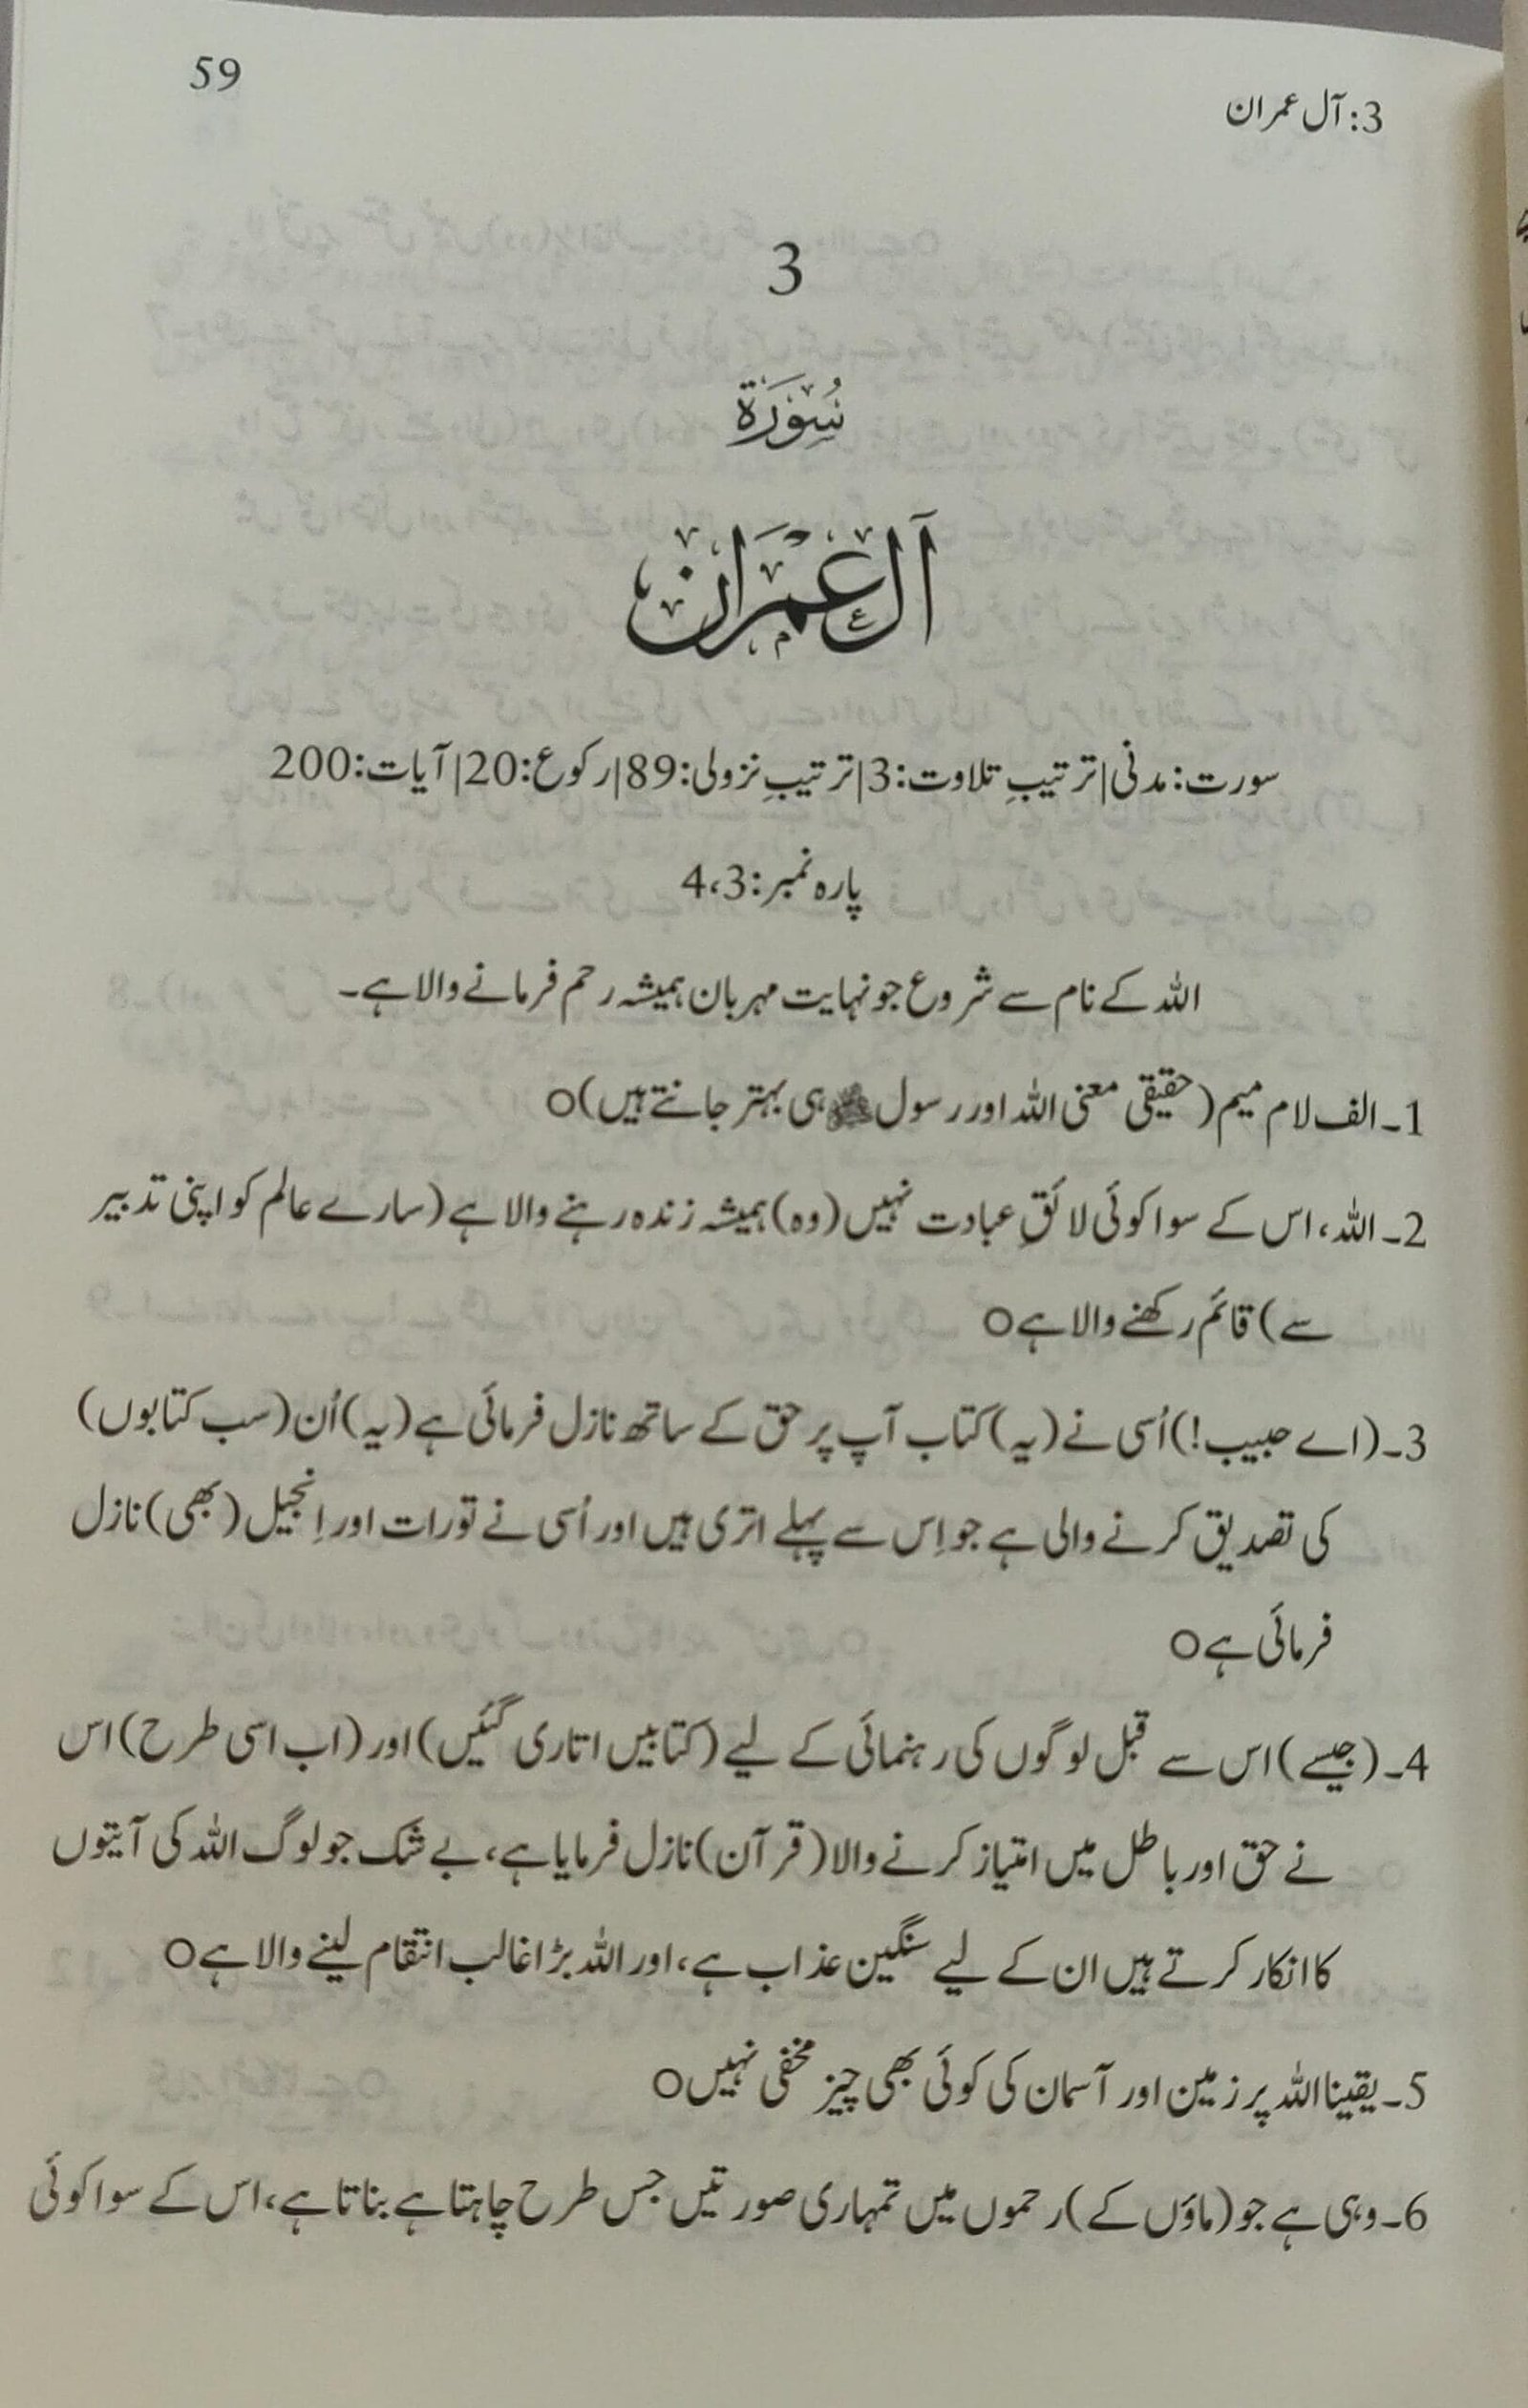 59
3: آل عمران
3
سُوْرَة
آلِ عِمْرَان
سورت: مدنی | ترتیبِ تلاوت: 3 | ترتیبِ نزولی: 89 | رکوع: 20 | آیات: 200
پارہ نمبر: 3، 4
اللہ کے نام سے شروع جو نہایت مہربان ہمیشہ رحم فرمانے والا ہے۔
1۔ الف لام میم (حقیقی معنی اللہ اور رسول ﷺ ہی بہتر جانتے ہیں)○
2۔ اللہ، اس کے سوا کوئی لائقِ عبادت نہیں (وہ) ہمیشہ زندہ رہنے والا ہے (سارے عالم کو اپنی تدبیر
سے) قائم رکھنے والا ہے○
3۔ (اے حبیب!) اُسی نے (یہ) کتاب آپ پر حق کے ساتھ نازل فرمائی ہے (یہ) اُن (سب کتابوں)
کی تصدیق کرنے والی ہے جو اِس سے پہلے اتری ہیں اور اُسی نے تورات اور اِنجیل (بھی) نازل
فرمائی ہے○
4۔ (جیسے) اس سے قبل لوگوں کی رہنمائی کے لیے (کتابیں اتاری گئیں) اور (اب اسی طرح) اس
نے حق اور باطل میں امتیاز کرنے والا (قرآن) نازل فرمایا ہے، بے شک جو لوگ اللہ کی آیتوں
کا انکار کرتے ہیں ان کے لیے سنگین عذاب ہے، اور اللہ بڑا غالب انتقام لینے والا ہے○
5۔ یقینا اللہ پر زمین اور آسمان کی کوئی بھی چیز مخفی نہیں○
6۔ وہی ہے جو (ماؤں کے) رحموں میں تمہاری صورتیں جس طرح چاہتا ہے بناتا ہے، اس کے سوا کوئی